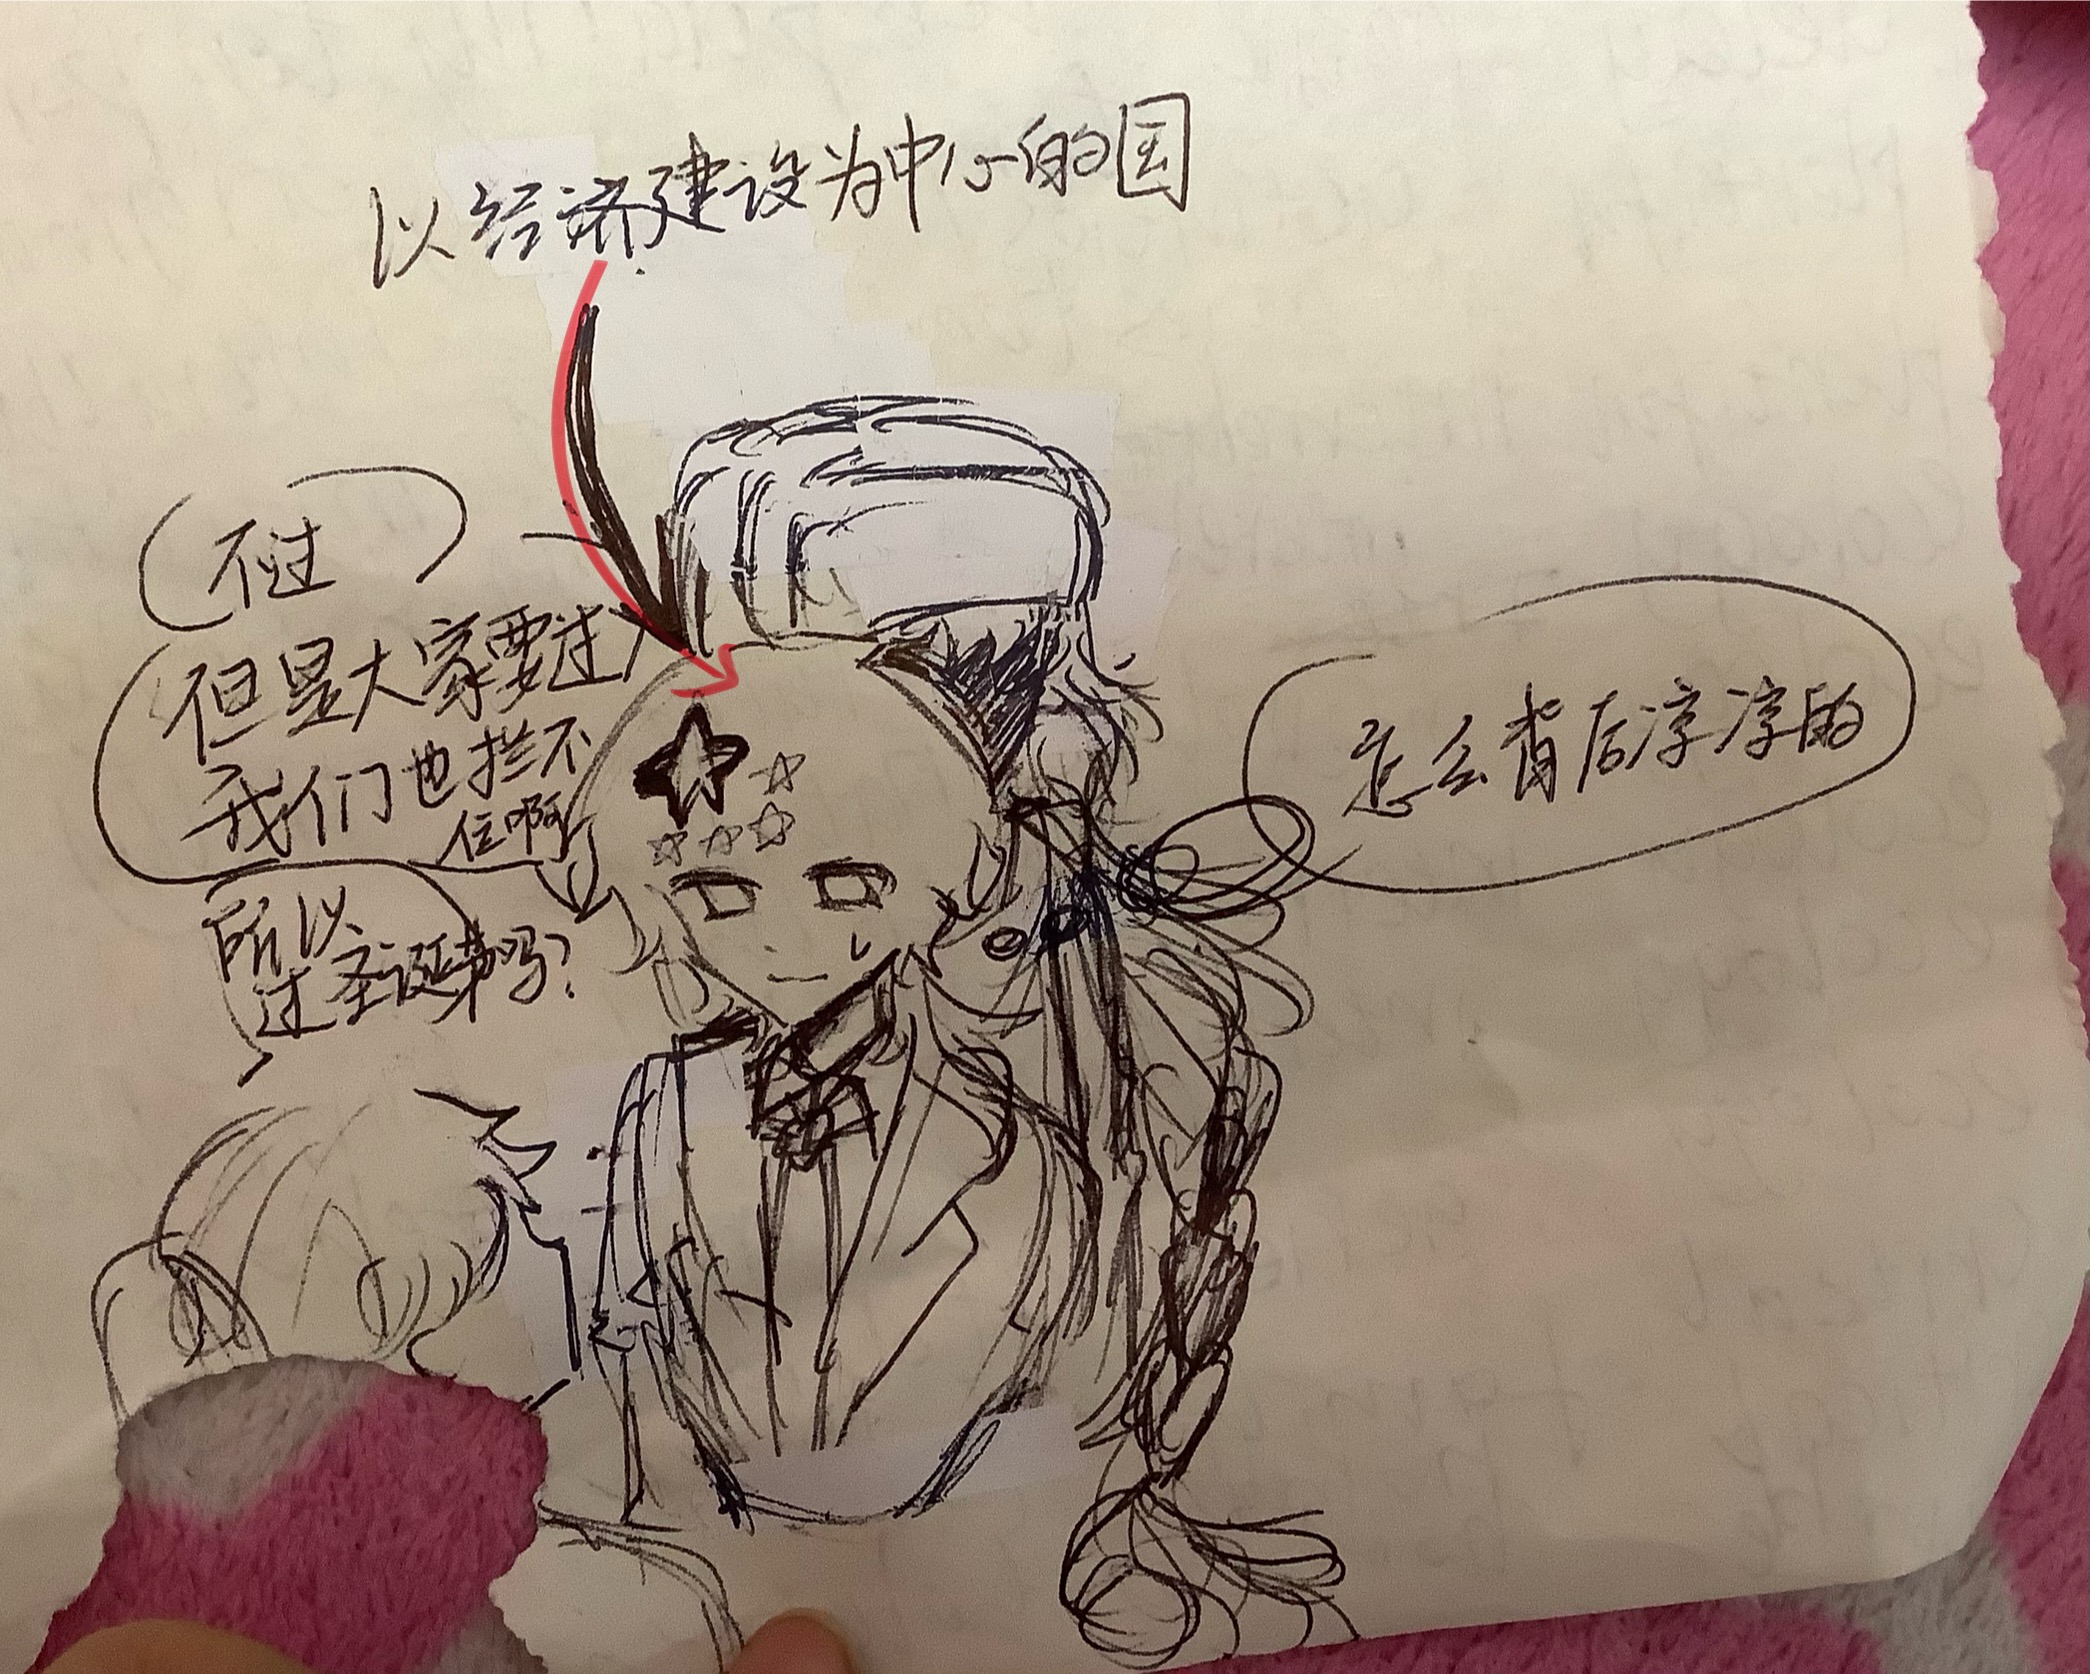 以经济建设为中心的国
不过
但是大家要过
我们也拦不
住啊
所以
过圣诞节吗？
怎么背后凉凉的